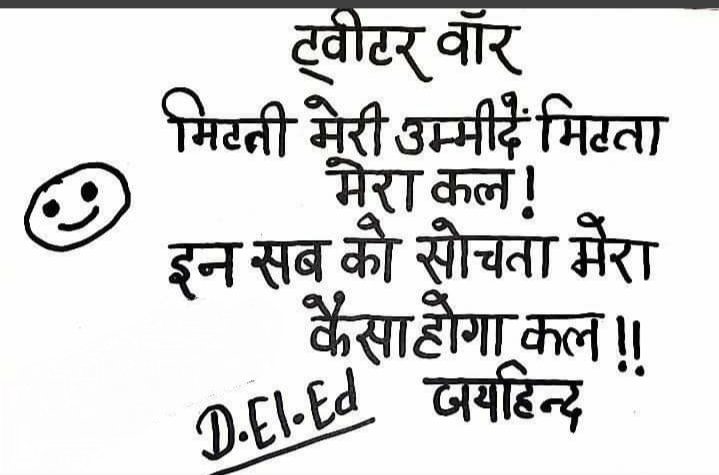 ट्वीटर वॉर
मिटती मेरी उम्मीदें मिटता
मेरा कल!
इन सब को सोचता मेरा
कैसा होगा कल !!
जयहिन्द
D.El.Ed